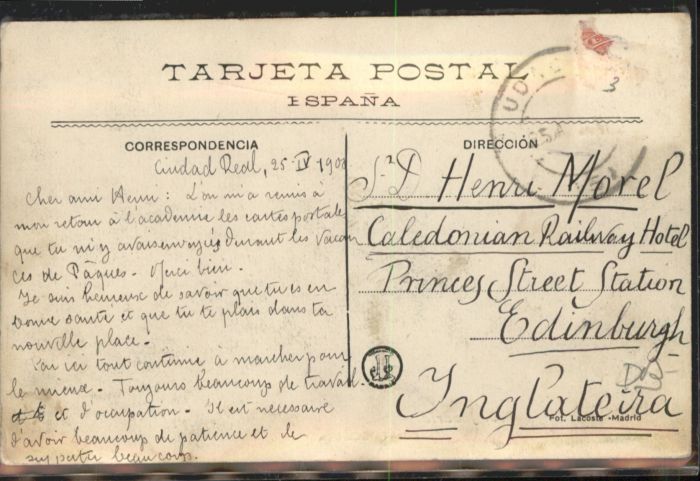 TARJETA POSTAL
ESPAÑA
CORRESPONDENCIA
DIRECCIÓN
Ciudad Real, 25-IV-190
Cher ami Henri : L'on m'a remis à
mon retour à l'academie les cartes postales
que tu m'y avais envoyés durant les vacan
ces de Pâques. Merci bien.
Je suis heureux de savoir que tu es en
bonne santé et que tu te plais dans ta
nouvelle place.
J'ai ici tout continue à marcher pour
le mieux. Toujours beaucoup de travail
et d'occupation. Il est necessaire
d'avoir beaucoup de patience et de
supporter beaucoup.
Sr D Henri Morel
Caledonian Railway Hotel
Princes Street Station
Edinburgh
Inglaterra
Fot. Lacoste - Madrid
UD
3